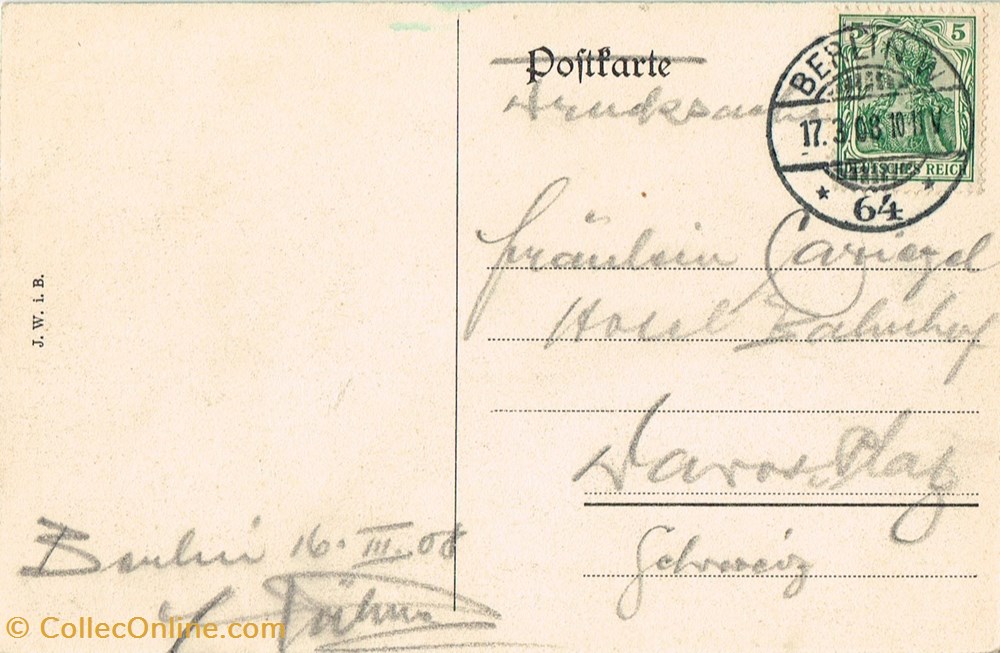 Postkarte
Drucksache
5 5
BERLIN W
17.3.08 10-11 V
DEUTSCHES REICH
* 64 *
Fräulein
Hotel Bahnhof
Davos-Platz
Schweiz
J. W. i. B.
Berlin 16. III. 08
© CollecOnline.com